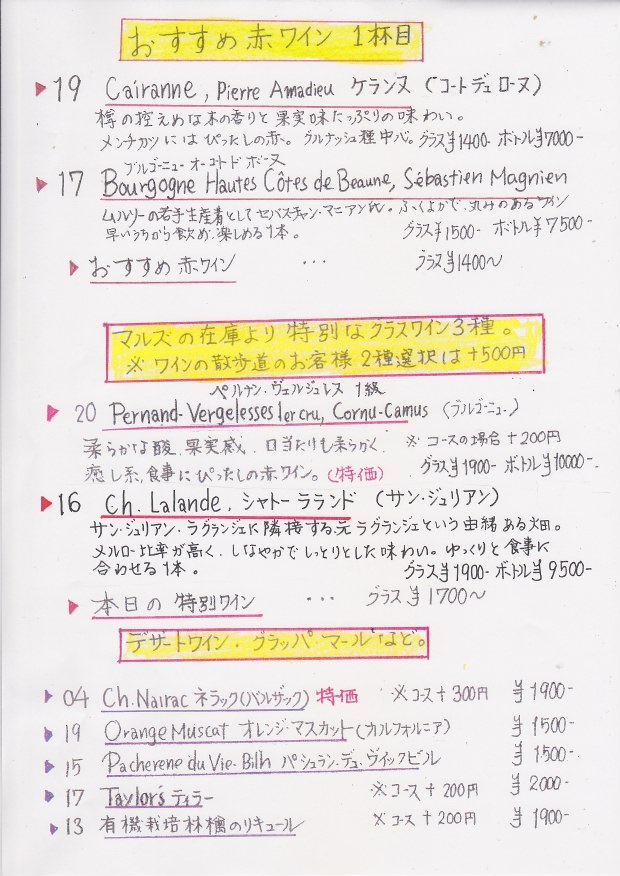 おすすめ赤ワイン 1杯目
19 Cairanne, Pierre Amadieu ケランヌ (コートデュローヌ)
樽の控えめな木の香りと果実味たっぷりの味わい。
メンチカツにはぴったしの赤。グルナッシュ種中心。グラス¥1400- ボトル¥7000-
ブルゴーニュ オーコートドボーヌ
17 Bourgogne Hautes Côtes de Beaune, Sébastien Magnien
ムルソーの若手生産者としてセバスチャン・マニアン氏。ふくよかで、丸みのあるワイン
早いうちから飲め、楽しめる1本。 グラス¥1500- ボトル¥7500-
おすすめ赤ワイン ・・・ グラス¥1400〜
マルズの在庫より特別なグラスワイン3種。
※ワインの散歩道のお客様2種選択は+500円
ペルナン・ヴェルジュレス 1級
20 Pernand-Vergelesses 1er cru, Cornu-Camus (ブルゴーニュ)
柔らかな酸、果実感、口当たりも柔らかく ※コースの場合+200円
癒し系、食事にぴったしの赤ワイン。(特価) グラス¥1900- ボトル¥10000-
16 Ch. Lalande, シャトー ラランド (サン・ジュリアン)
サン・ジュリアン・ラグランジェに隣接する、元ラグランジェという由緒ある畑。
メルロー比率が高く、しなやかでしっとりとした味わい。ゆっくりと食事に
合わせる1本。 グラス¥1900- ボトル¥9500-
本日の特別ワイン ・・・ グラス¥1700〜
デザートワイン・グラッパ・マールなど。
04 Ch. Nairac ネラック(バルザック) 特価 ※コース+300円 ¥1900-
19 Orange Muscat オレンジ・マスカット(カルフォルニア) ¥1500-
15 Pacherene du Vie-Bilh パシュラン・デュ・ヴイックビル ¥1500-
17 Taylor's ティラー ※コース+200円 ¥2000-
13 有機栽培林檎のリキュール ※コース+200円 ¥1900-